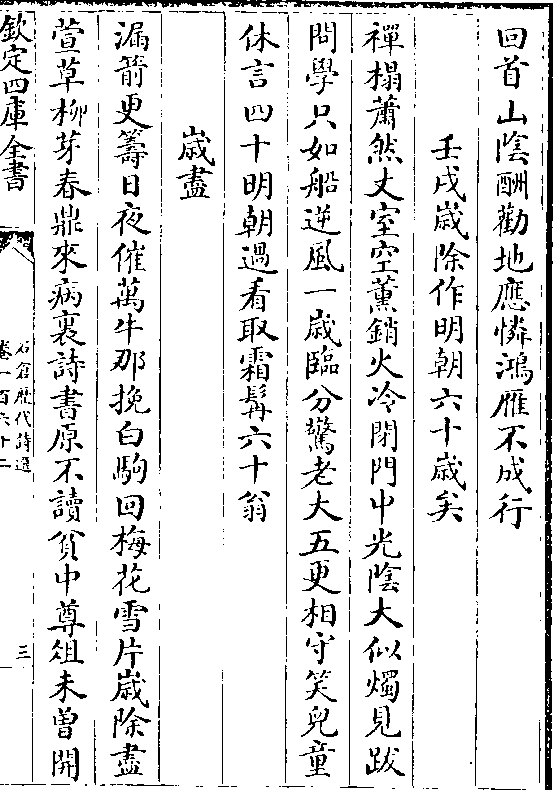 回首山陰酬勸地應憐鴻雁不成行
壬戌歲除作明朝六十歲矣
禪榻蕭然丈室空薰銷火冷閉門中光陰大似燭見跋
問學只如船逆風一歲臨分驚老大五更相守笑兒童
休言四十明朝過看取霜髯六十翁
歲盡
漏箭更籌日夜催萬牛那挽白駒回梅花雪片歲除盡
萱草柳芽春鼎來病裏詩書原不讀貧中尊俎未曾開
欽定四庫全書
石倉歷代詩選
卷一百六十二
三